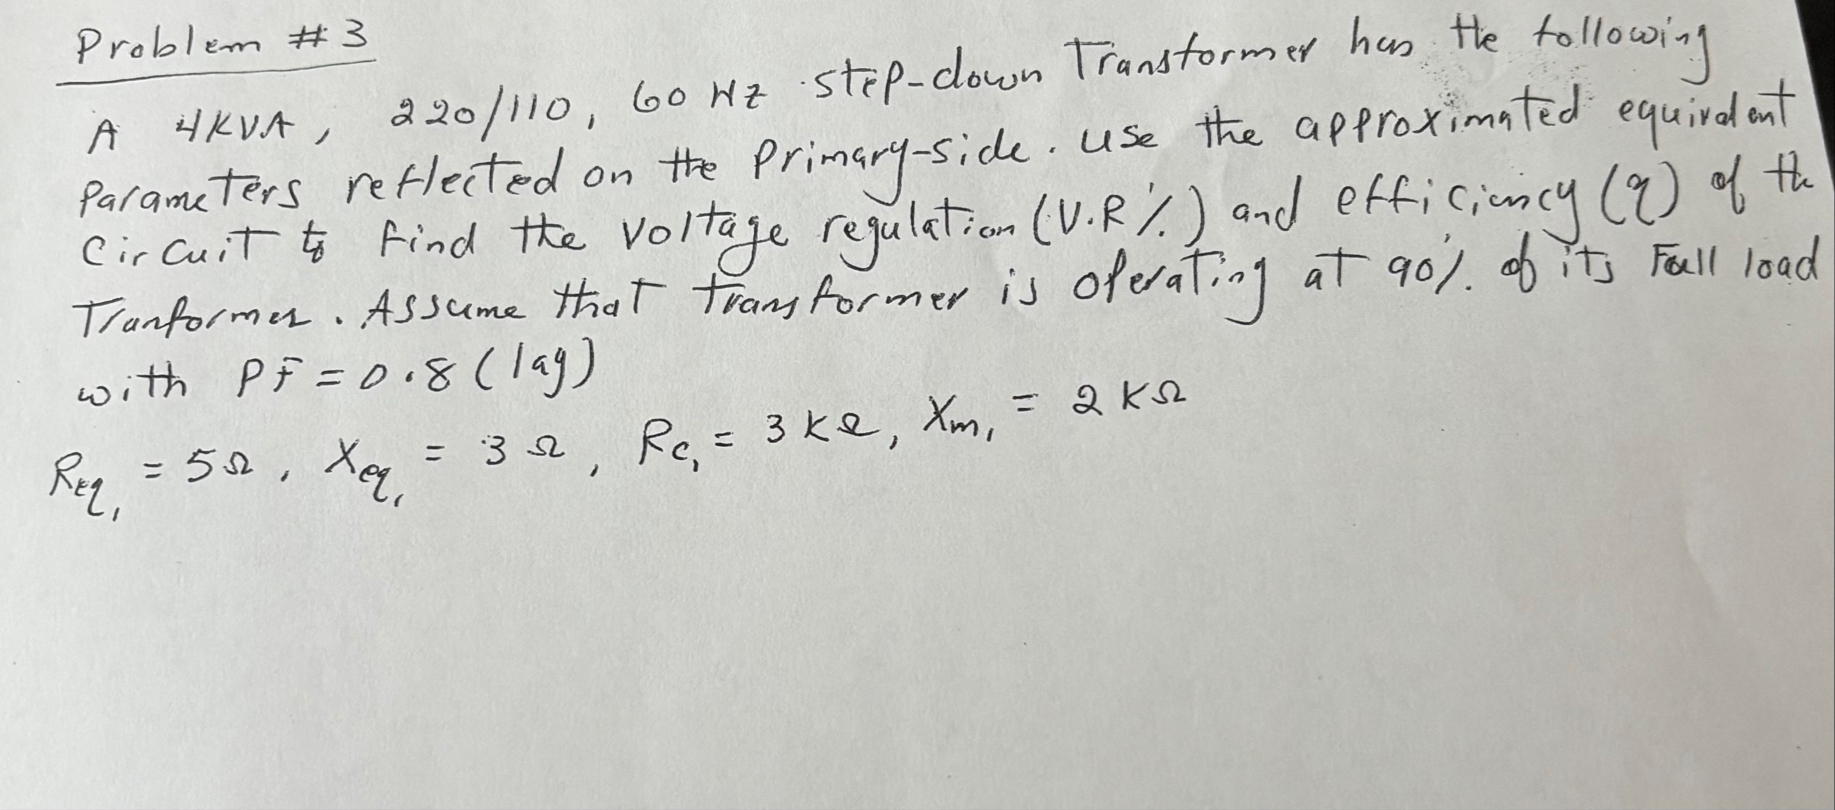 Problem #3
A 4KVA, 220/110, 60 Hz step-down Transformer has the following
Parameters reflected on the Primary-side. Use the approximated equivalent
Circuit to find the Voltage regulation (V.R%) and efficiency (η) of the
Tranformer. Assume that transformer is operating at 90% of its Full load
with PF = 0.8 (lag)
Req₁ = 5Ω, Xeq₁ = 3Ω, Rc₁ = 3KΩ, Xm₁ = 2KΩ